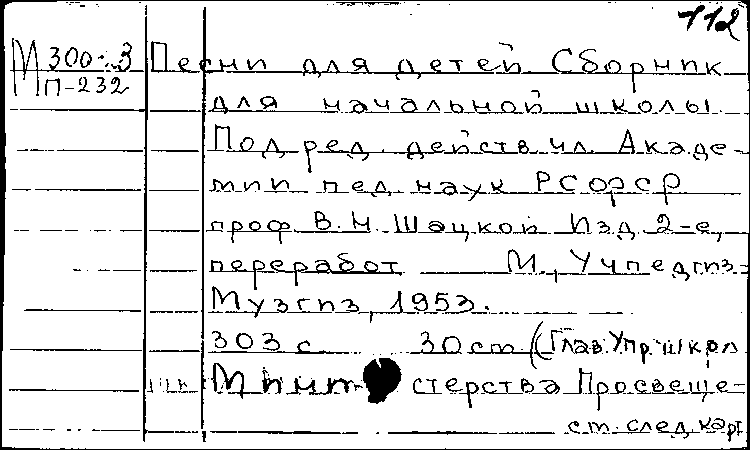 112
М 300.3 Песни для детей Сборник
П-232
для начальной школы.
Под ред. действ. чл. Акаде-
мии пед. наук РСФСР
проф. В. Н. Шацкой Изд. 2-е,
переработ М., Учпедгиз-
Музгиз, 1953.
303 с 30 см (Глав. Упр. школ
Министерства Просвеще-
см. след. карт